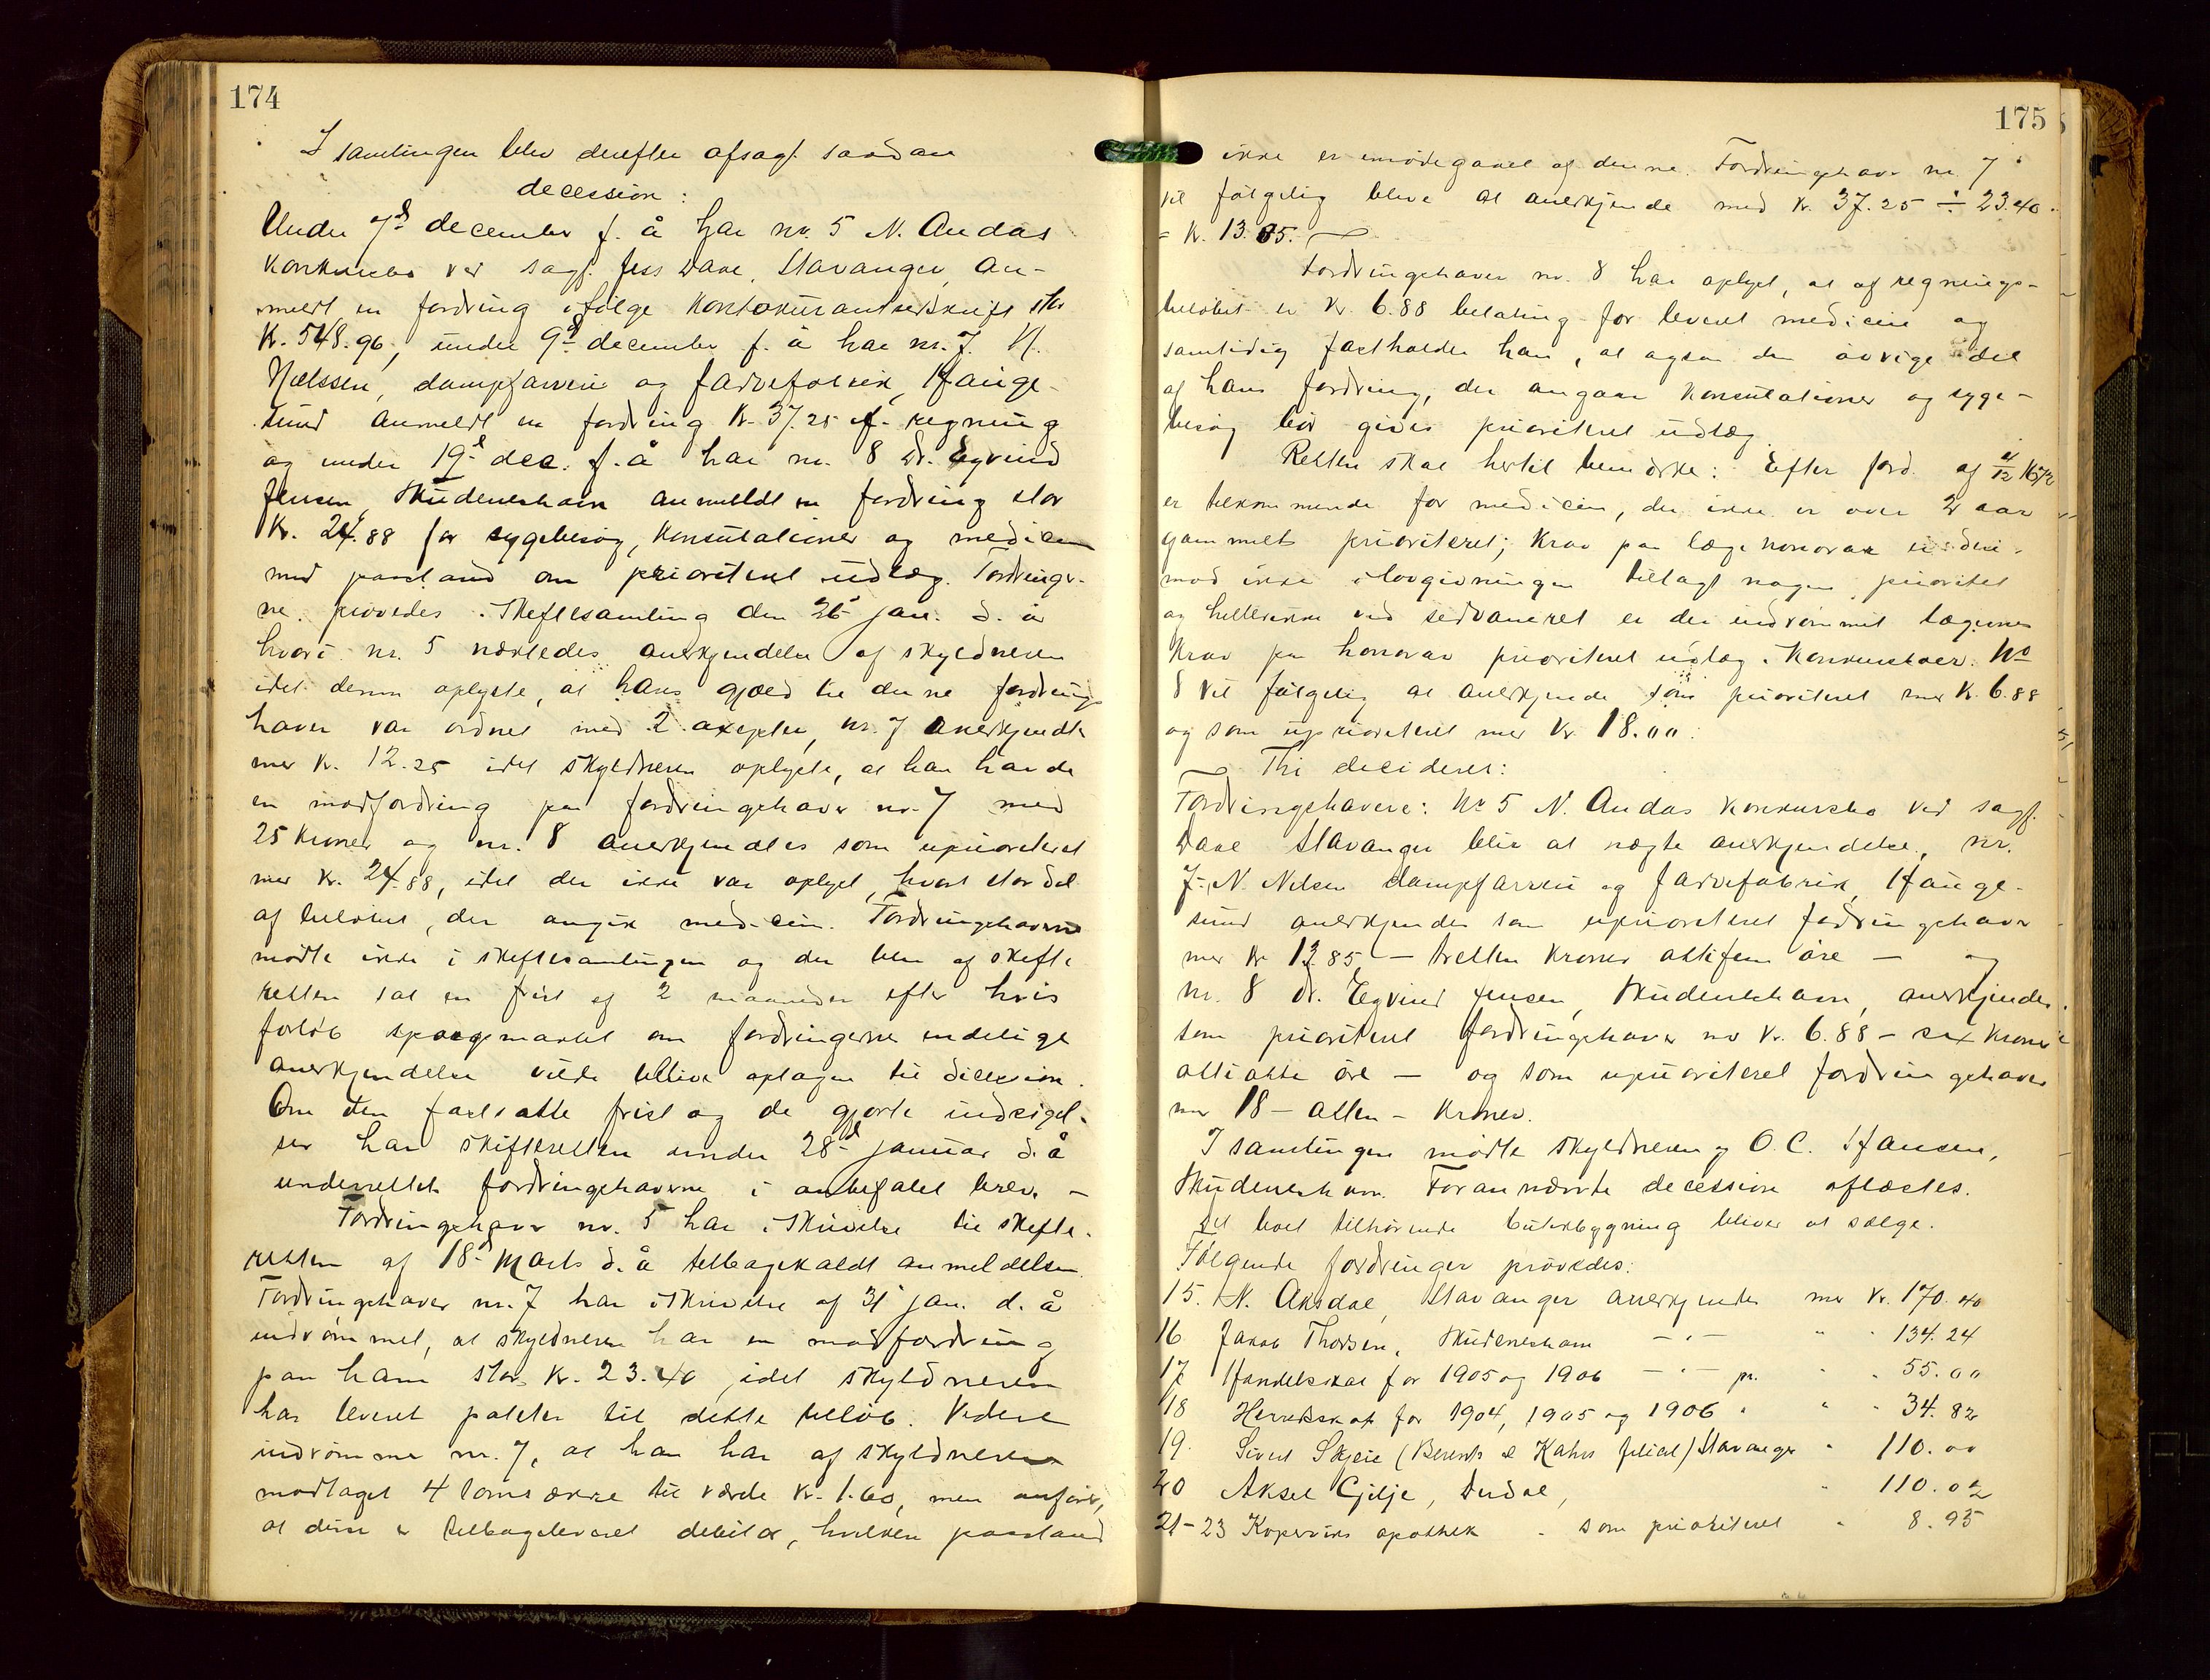 174
I samlingen blev derefter afsagt saadan
decession:
Under 7de december f. å har nr. 5 N. Andas
konkursbo ved sagf. Jess Dave, Stavanger, an-
meldt en fordring ifølge kontokurantudskrift stor
kr. 548.96, under 9de december f. å har nr. 7. N.
Nielssen, dampfarveri og farvefabrik, Hauge-
sund anmeldt en fordring kr. 37.25 ef. regning
og under 19de dec. f. å har nr. 8 Dr. Eyvind
Jensen, Skudeneshavn anmeldt en fordring stor
kr. 24.88 for sygebesøg, konsutationer og medicin
med paastand om prioriteret udlæg. Fordringer-
ne prøvedes i skiftesamling den 26de jan. d. å
hvori nr. 5 nægtedes anerkjendelse af skyldneren
idet denne oplyste, at hans gjæld til denne fordrings
haver var ordnet med 2 axepter, nr. 7 anerkjendtes
med kr. 12.25 idet skyldneren oplyste, at han havde
en modfordring paa fordringshaver nr. 7 med
25 kroner og nr. 8 anerkjendtes som uprioriteret
med kr. 24.88, idet der ikke var oplyst, hvor stor del
af beløbet, der angik medicin. Fordringshaverne
mødte ikke i skiftesamlingen og der blev af skifte
retten sat en frist af 2 maaneder efter hvis
forløb spørgsmaalet om fordringernes endelige
anerkjendelse vilde blive optagen til decession.
Om den fastsatte frist og de gjorte indsigel-
ser har skifteretten under 28de januar d. å
underrettet fordringshaverne i anbefalet brev. -
Fordringshaver nr. 5 har i skrivelse til skifte-
retten af 18de marts d. å tilbagekaldt anmeldelsen.
Fordringshaver nr. 7 har i skrivelse af 31 jan. d. å
indrømmet, at skyldneren har en modfordring
paa ham stor kr. 23.40, idet skyldneren
har leveret paletter til dette beløb. Videre
indrømmer nr. 7, at han har af skyldneren
modtaget 4 tomsække til værdi kr. 1.60, men anfører,
at disse er tilbageleveret debitor, hvilken paastand
175
ikke er imødegaaet af denne. Fordringshaver nr. 7
vil følgelig blive at anerkjende med kr. 37.25 ÷ 23.40
= kr. 13.85.
Fordringshaver nr. 8 har oplyst, at af regnings-
beløbet er kr. 6.88 betaling for leveret medicin og
samtidig fastholder han, at ogsaa den øvrige del
af hans fordring, der angaar konsutationer og syge-
besøg bør gives prioriteret udlæg.
Retten skal hertil bemærke: Efter ford. af 4/12 1672
er tilkommende for medicin, der ikke er over 2 aar
gammelt prioriteret; krav paa lægehonorar er der-
mod ikke i lovgivningen tillagt nogen prioritet
og hellerikke ved sedvaneret er der indrømmet lægernes
krav paa honorar prioriteret udlæg i konkursboer. No
8 vil følgelig at anerkjende som prioriteret med kr. 6.88
og som uprioriteret med kr. 18.00.
Thi decideret:
Fordringshavere: Nr 5 N. Andas konkursbo ved sagf.
Dave Stavanger blir at nægte anerkjendelse, nr.
7. N. Nilsen dampfarveri og farvefabrik, Hauge-
sund anerkjendes som uprioriteret fordringshaver
med kr 13.85 - tretten kroner ottifem øre - og
nr. 8 dr. Eyvind Jensen, Skudeneshavn, anerkjendes
som prioriteret fordringshaver med kr. 6.88 - sex kroner
ottiotte øre - og som uprioriteret fordringshaver
med 18 - atten - kroner.
I samlingen mødte skyldneren og O. C. Hansen,
Skudeneshavn. Forannævnte decession oplæstes.
Det boet tilhørende butikbygning bliver at sælge.
Følgende fordringer prøvedes:
15. N. Aksdal, Stavanger anerkjendes med kr. 170.40
16 Jakob Thorsen, Skudeneshavn - " - " " 134.24
17 Handelsskat for 1905 og 1906 - " - pr. " " 55.00
18 Herredsskat for 1904, 1905 og 1906 " " " 34.82
19. Sivert Skjeie (Berents & Kahrs filial) Stavanger " 110.00
20 Aksel Gjilje, Dudal, " 110.02
21-23 Kopervik apothek " som prioriteret " 8.95